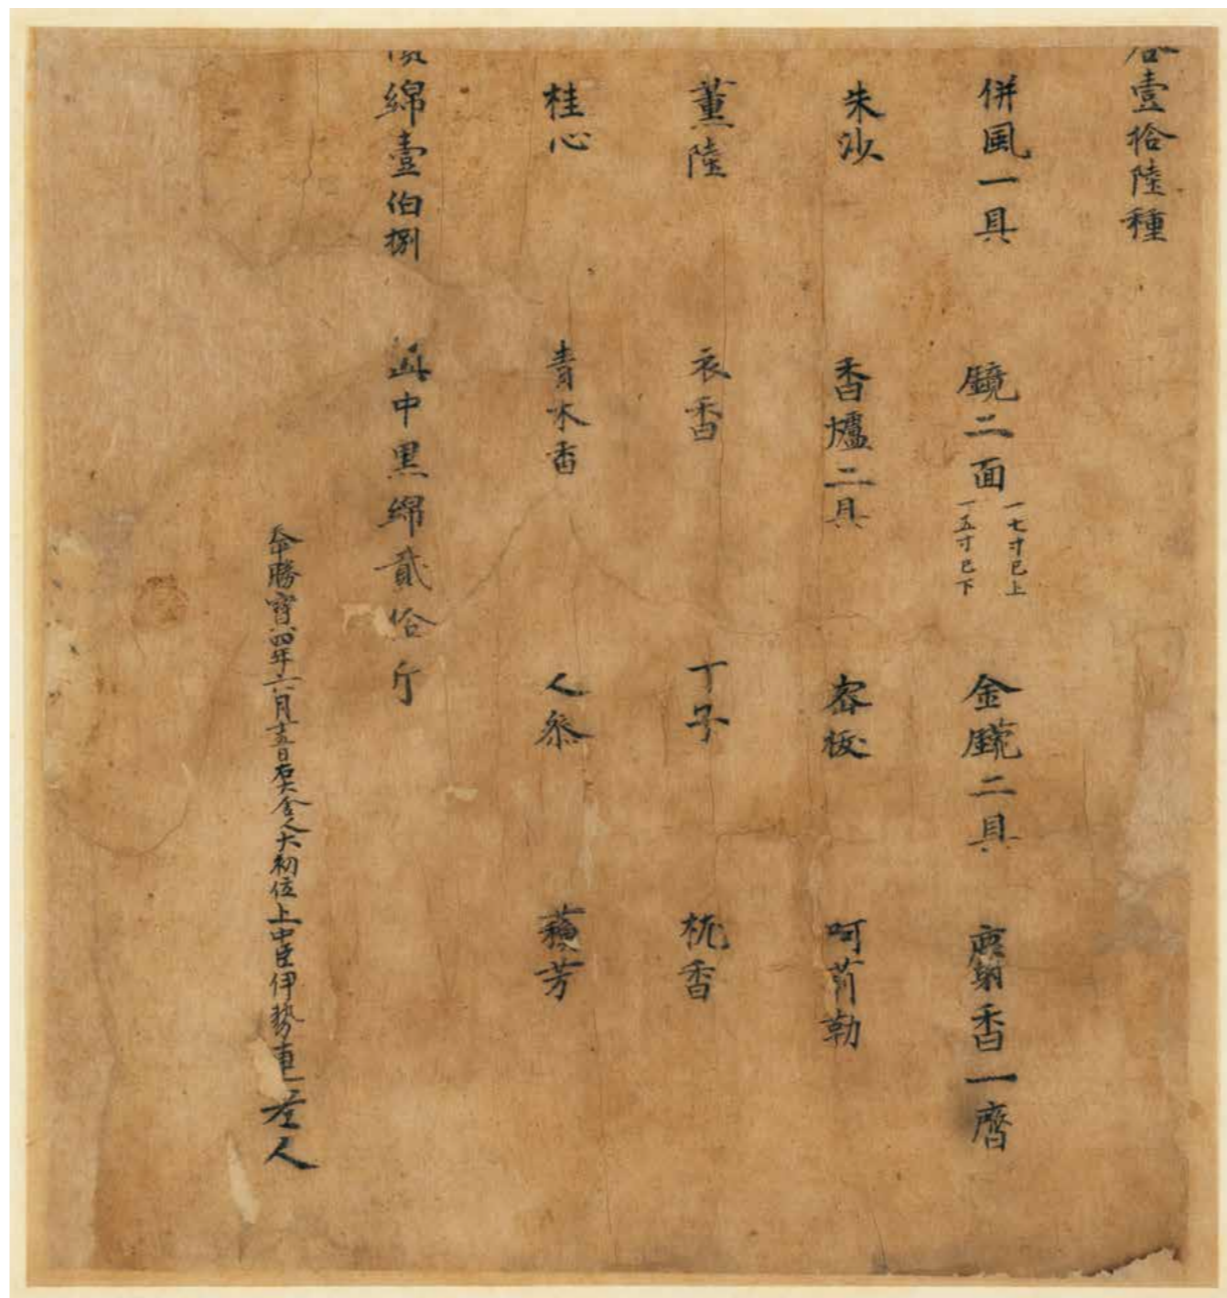 壹拾陸種
併風一具 鏡二面 一七寸已上 一五寸已下 金鋺二具 麝香一臍
朱沙 香爐二具 密拔 呵莉勒
薫陸 衣香 丁子 枕香
桂心 青木香 人參 蘓芳
綿壹伯捌 中黒綿貳拾斤
勝寳四年六月十五日右大舎人大初位上中臣伊勢連老人